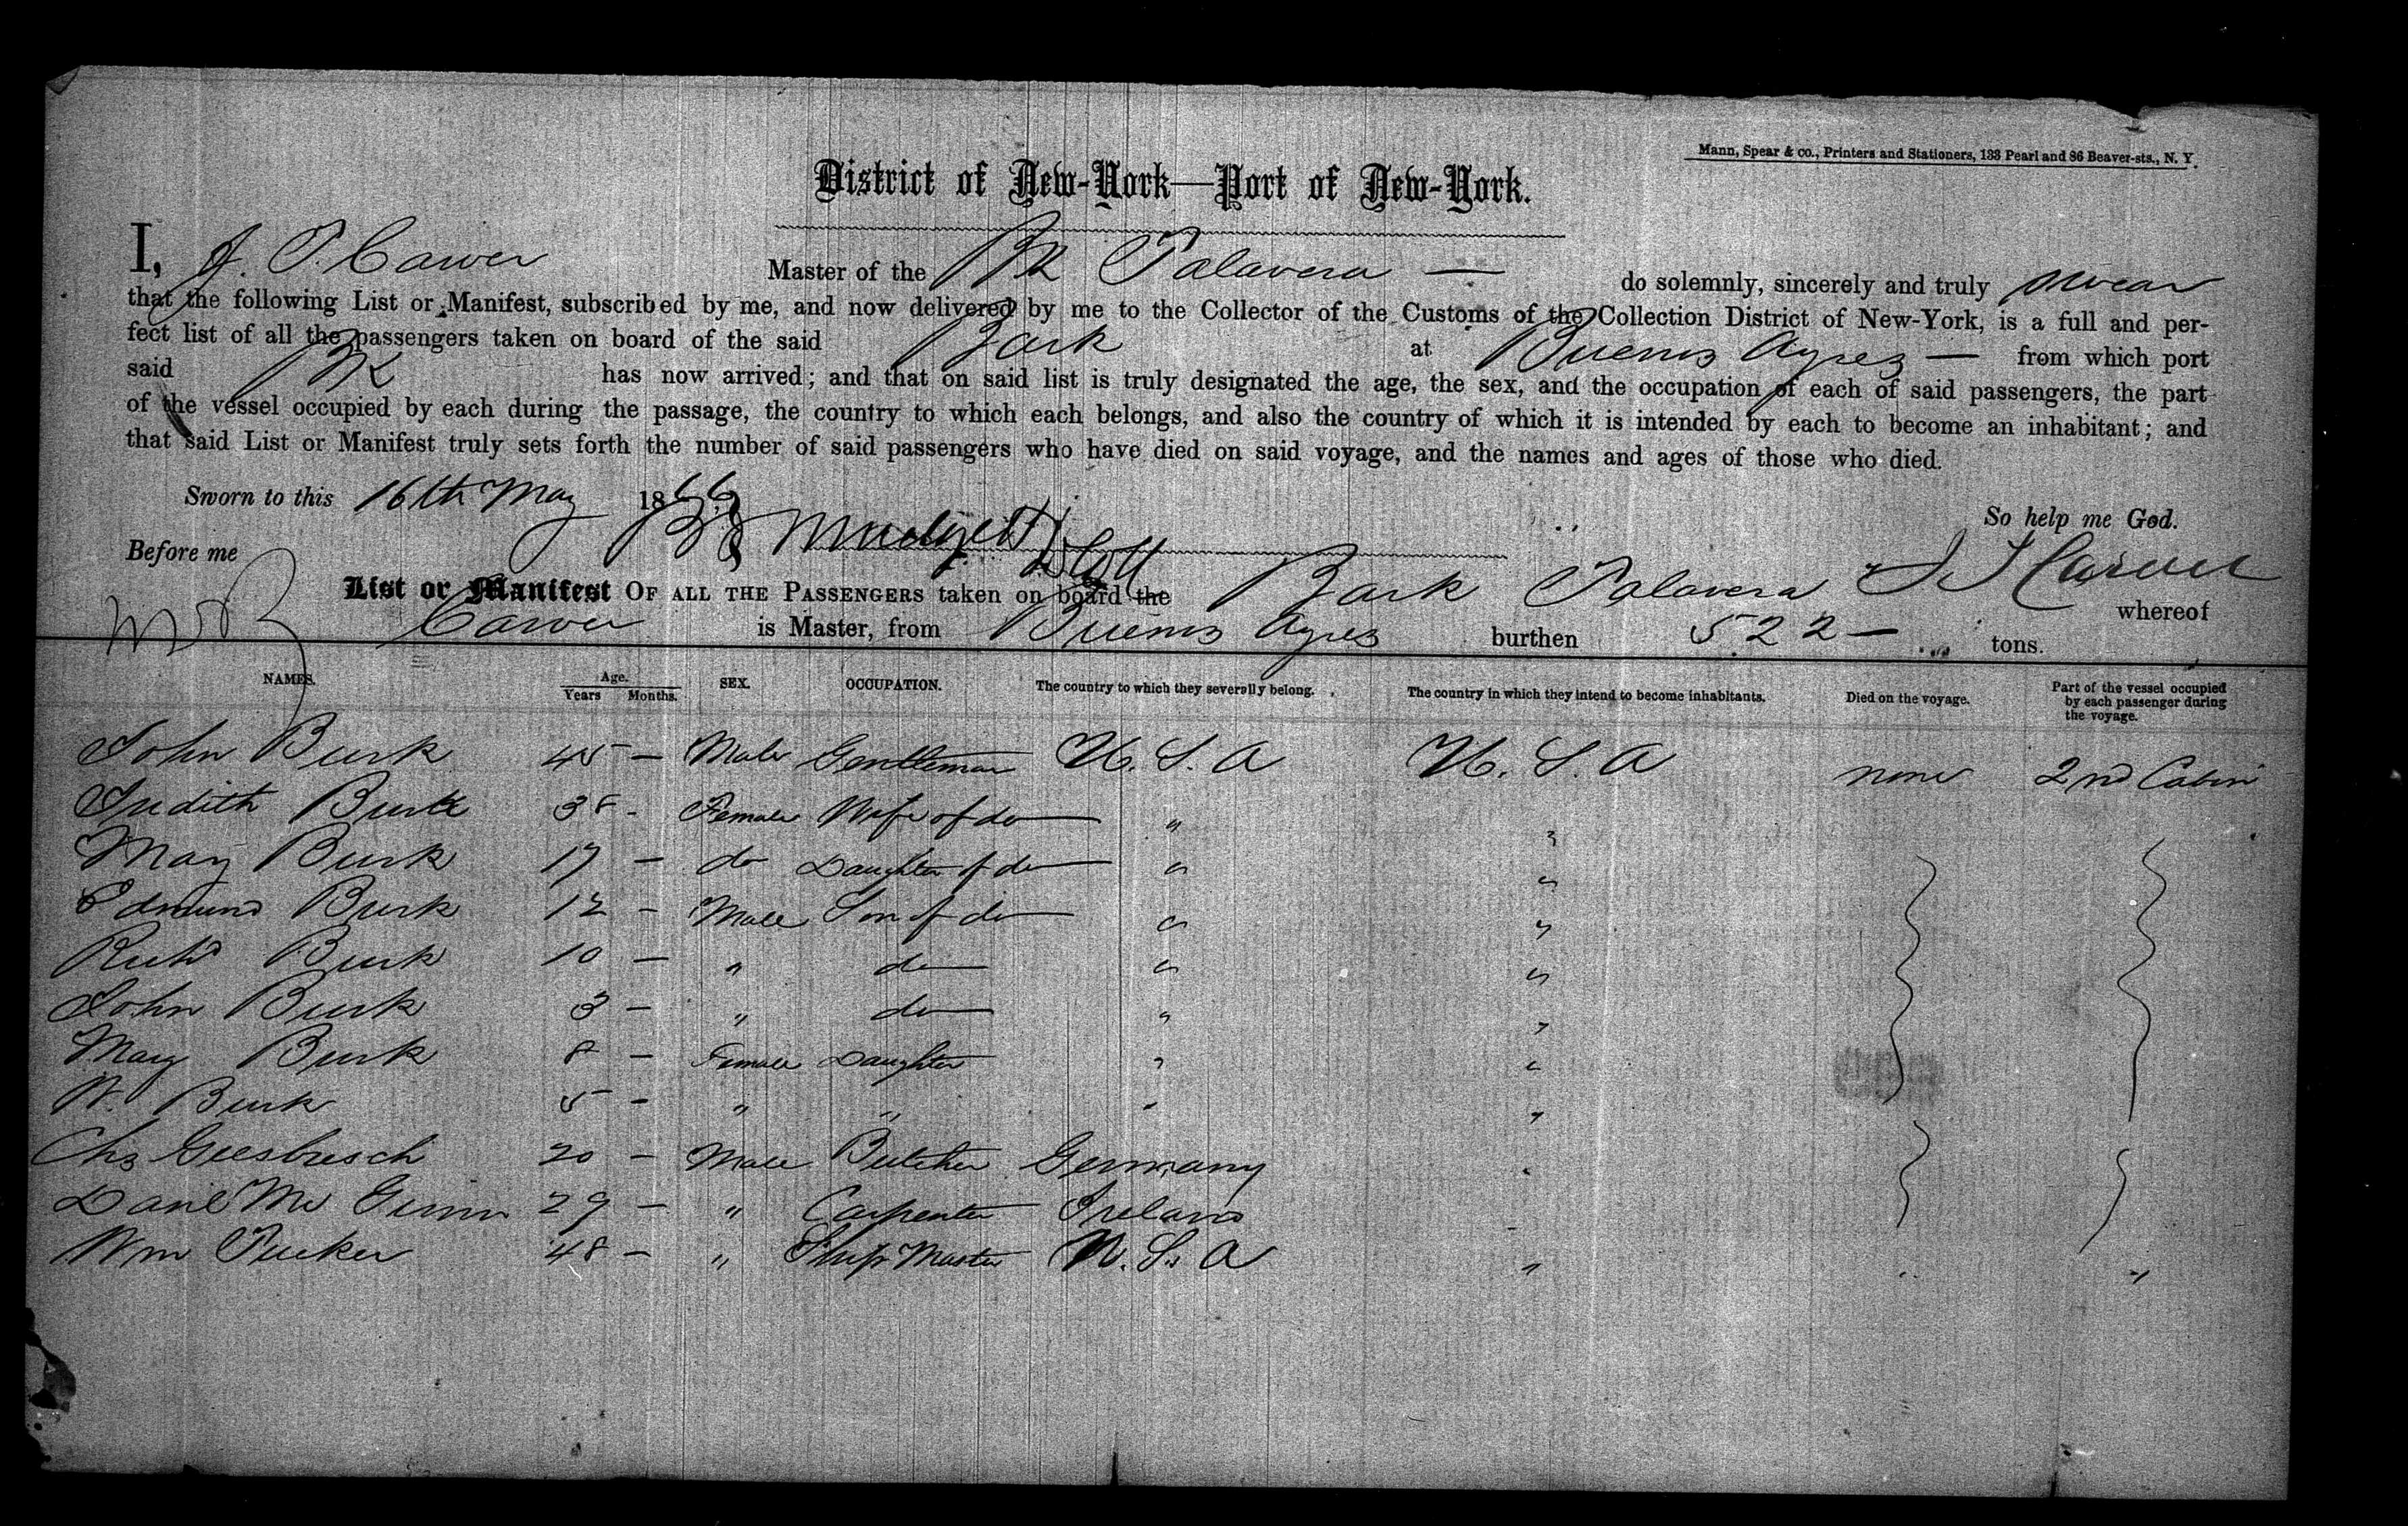 Mann, Spear & co., Printers and Stationers, 133 Pearl and 86 Beaver-sts., N. Y.
District of New-York—Port of New-York.
I, J. T. Carver Master of the Bk Talavera — do solemnly, sincerely and truly swear
that the following List or Manifest, subscribed by me, and now delivered by me to the Collector of the Customs of the Collection District of New-York, is a full and per-
fect list of all the passengers taken on board of the said Bark at Buenos Ayres — from which port
said Bk has now arrived; and that on said list is truly designated the age, the sex, and the occupation of each of said passengers, the part
of the vessel occupied by each during the passage, the country to which each belongs, and also the country of which it is intended by each to become an inhabitant; and
that said List or Manifest truly sets forth the number of said passengers who have died on said voyage, and the names and ages of those who died.
Sworn to this 16th May 1866
So help me God.
Before me
Mudgett
List or Manifest OF ALL THE PASSENGERS taken on board the Bark Talavera whereof
J T Carver
Carver is Master, from Buenos Ayres burthen 522 — tons.
NAMES. Age. Years Months. SEX. OCCUPATION. The country to which they severally belong. The country in which they intend to become inhabitants. Died on the voyage. Part of the vessel occupied by each passenger during the voyage.
John Burk 45 — Male Gentleman U. S. A U. S. A none 2nd Cabin
Judith Burk 38 - Female Wife of do " "
May Burk 17 — do Daughter of do " "
Edmund Burk 12 - Male Son of do " "
Richd Burk 10 — " do " "
John Burk 3 — " do " "
Mary Burk 8 — Female Daughter " "
W. Burk 5 - " " " "
Chs Geesbresch 20 - Male Butcher Germany "
Danl Mc Ginn 29 — " Carpenter Ireland "
Wm Tucker 48 — " Ship Master U. S. A " " "